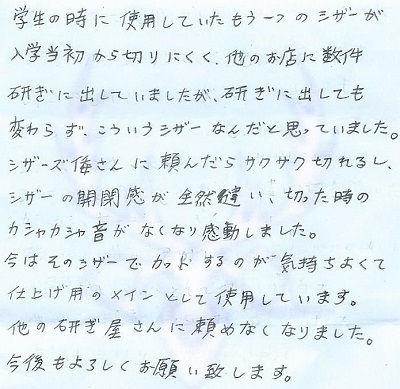 学生の時に使用していたもう一つのシザーが
入学当初から切りにくく、他のお店に数件
研ぎに出していましたが、研ぎに出しても
変わらず、こういうシザーなんだと思っていました。
シザーズ侮さんに頼んだらサクサク切れるし、
シザーの開閉感が全然違い、切った時の
カシャカシャ音がなくなり感動しました。
今はそのシザーでカットするのが気持ちよくて
仕上げ用のメインとして使用しています。
他の研ぎ屋さんに頼めなくなりました。
今後もよろしくお願い致します。